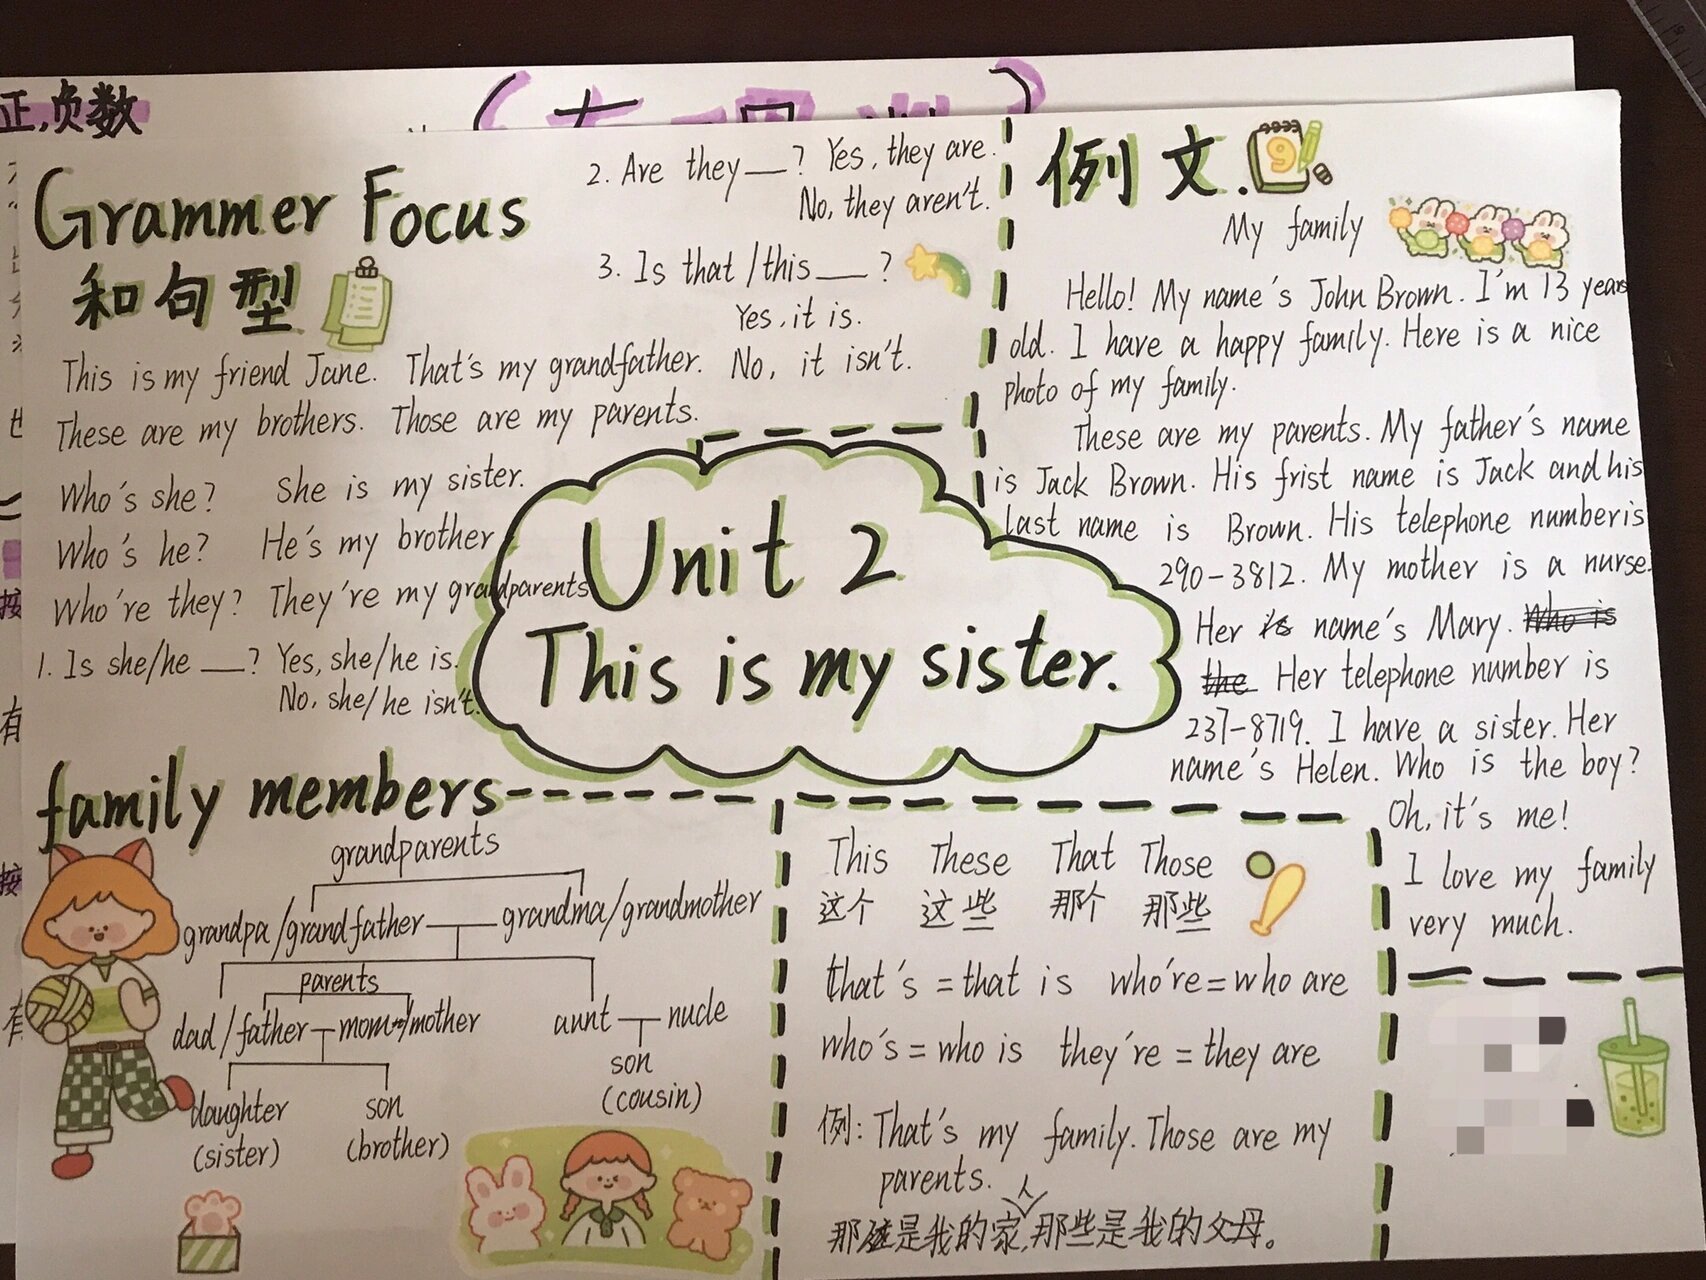 正,负数
Grammer Focus
和句型
This is my friend Jane. That's my grandfather.
These are my brothers. Those are my parents.
Who's she? She is my sister.
Who's he? He's my brother
Who're they? They're my grandparents
1. Is she/he __? Yes, she/he is.
No, she/he isn't.
2. Are they __? Yes, they are.
No, they aren't.
3. Is that/this __?
Yes, it is.
No, it isn't.
Unit 2
This is my sister.
例文.
9
My family
Hello! My name's John Brown. I'm 13 years
old. I have a happy family. Here is a nice
photo of my family.
These are my parents. My father's name
is Jack Brown. His frist name is Jack and his
last name is Brown. His telephone number is
290-3812. My mother is a nurse.
Her is name's Mary. Who is
the Her telephone number is
237-8719. I have a sister. Her
name's Helen. Who is the boy?
Oh, it's me!
I love my family
very much.
family members
grandparents
grandpa/grandfather grandma/grandmother
parents
dad/father mom/mother aunt nucle
daughter son son
(sister) (brother) (cousin)
This These That Those
这个 这些 那个 那些
that's = that is who're = who are
who's = who is they're = they are
例: That's my family. Those are my
parents.
那是我的家人,那些是我的父母。
也
按
有
按
有